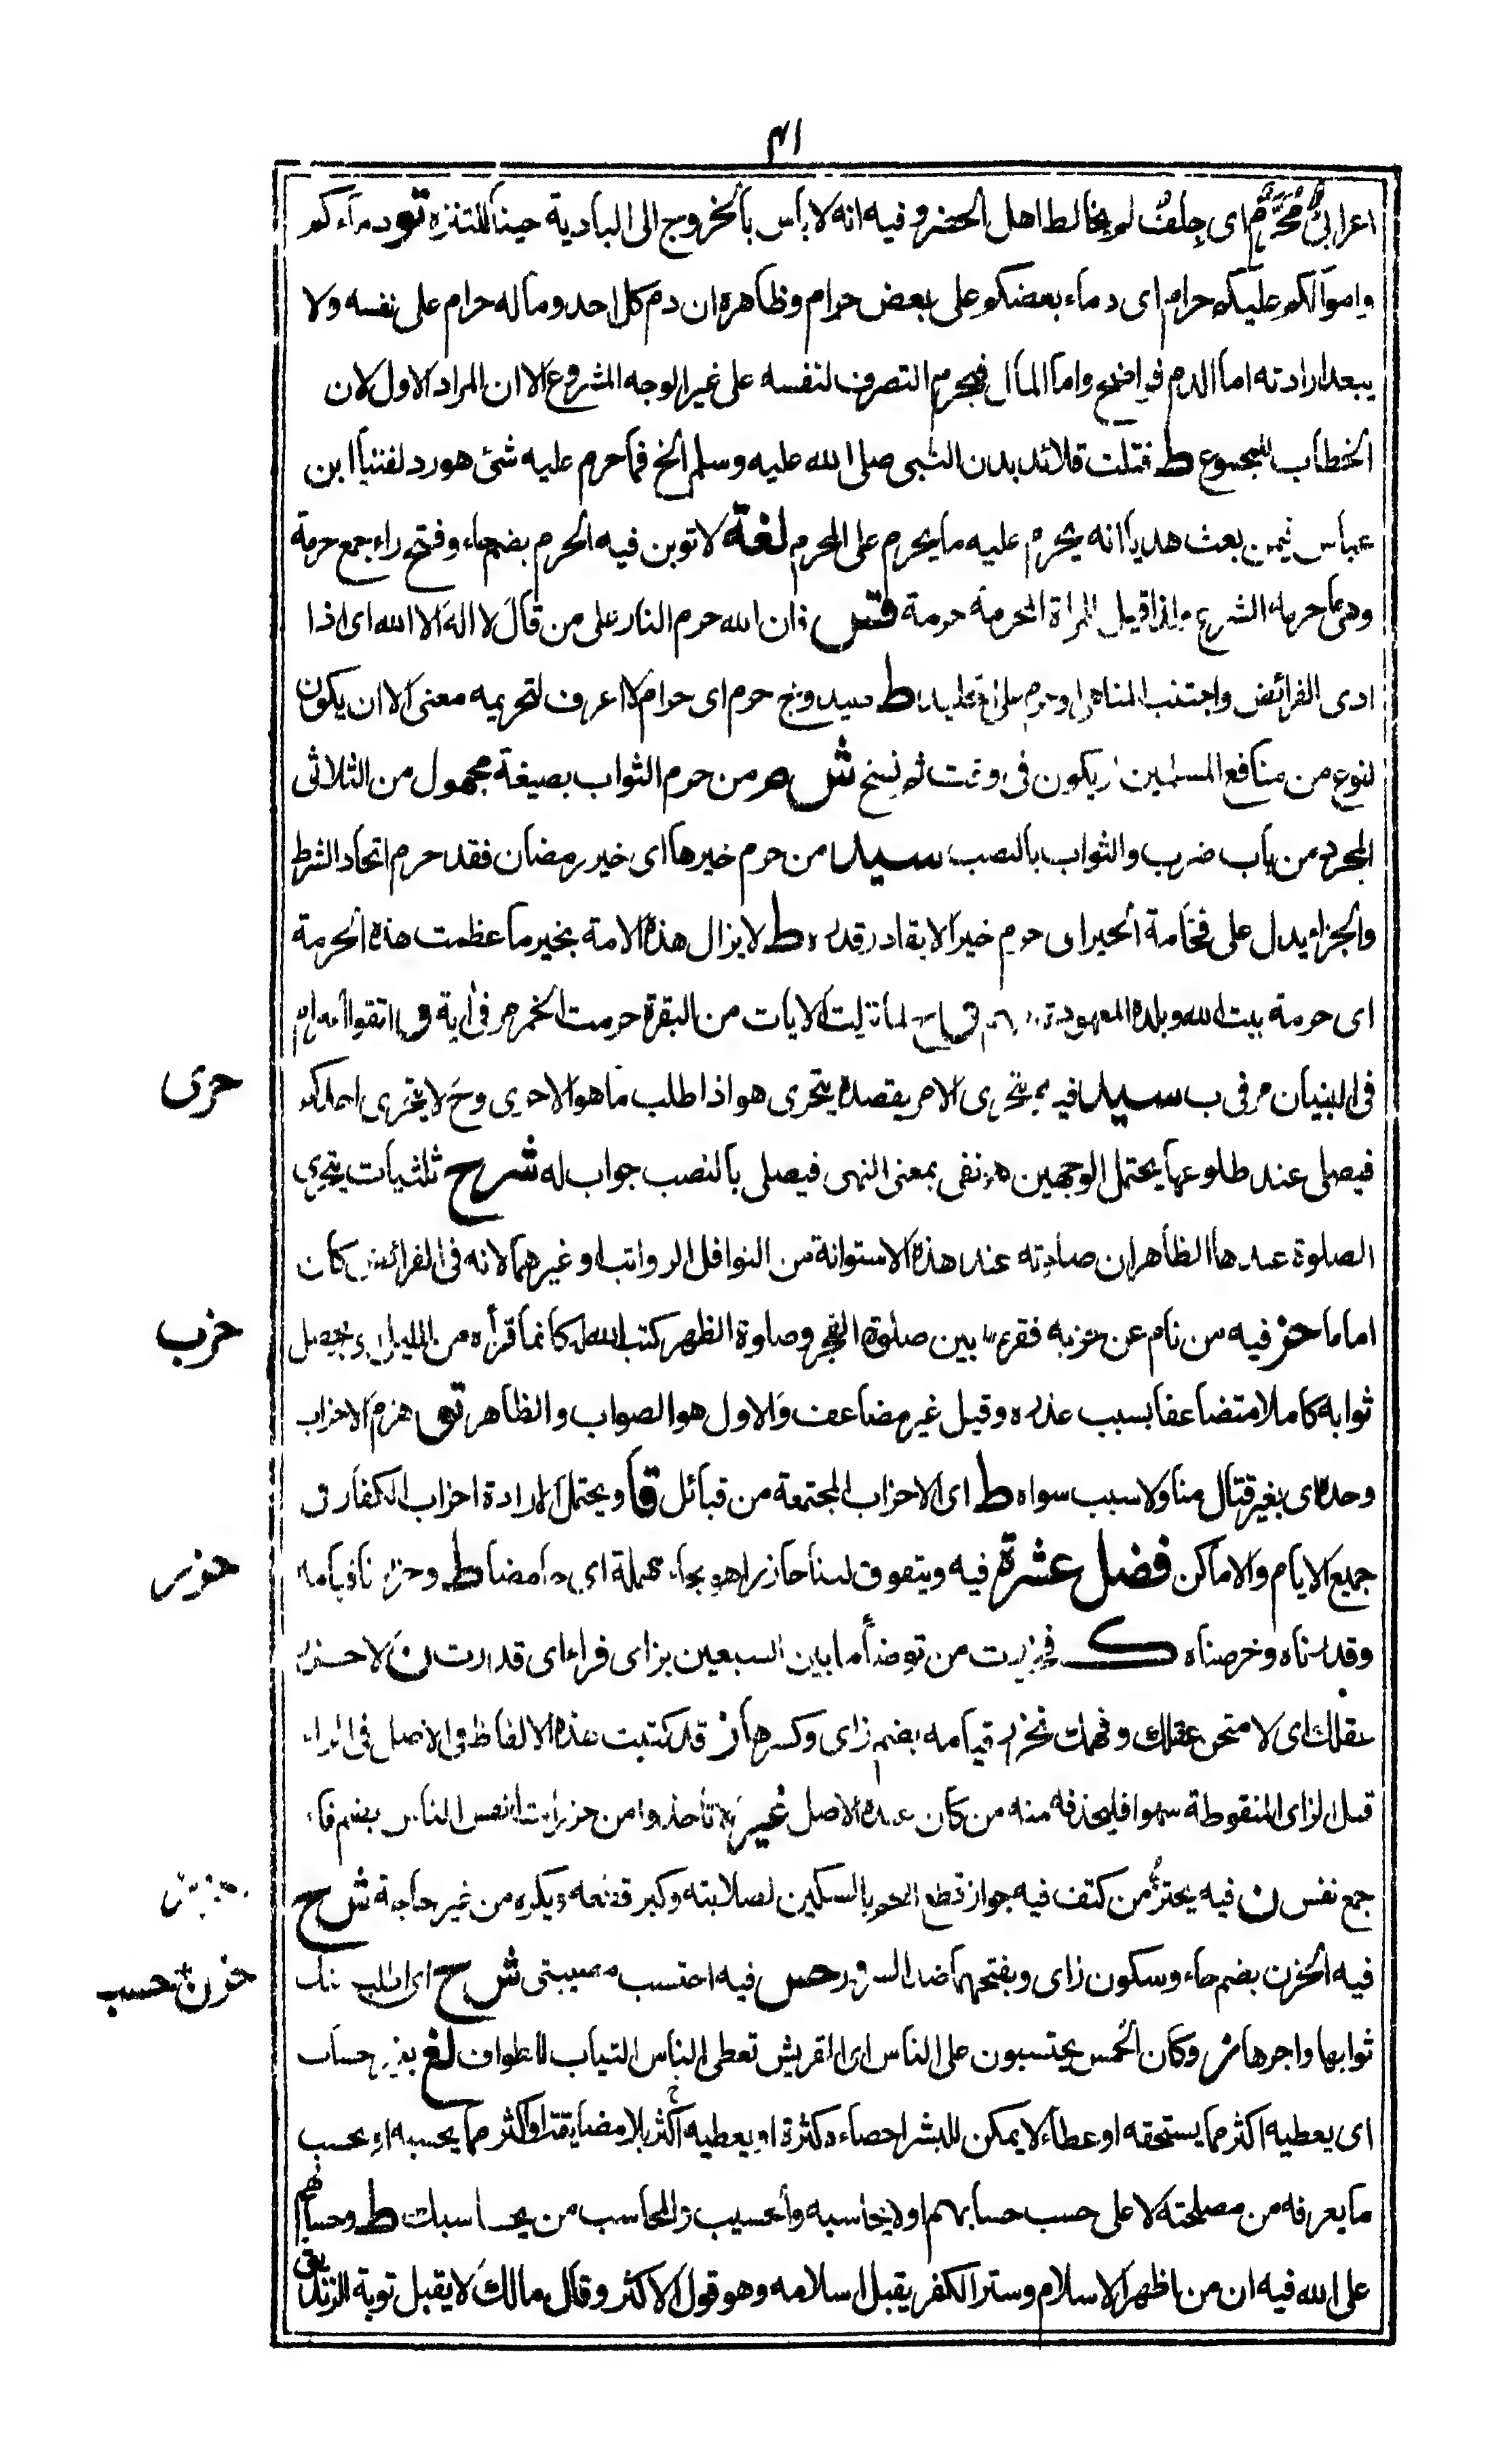 ٤١
اعرابي محرم اى جلف لم يخالط اهل الحضر وفيه انه لا باس بالخروج الى البادية حينا للتنزه تو دماءكم
واموالكم عليكم حرام اى دماء بعضكم على بعض حرام وظاهره ان دم كل احد وماله حرام على نفسه ولا
يبعد ارادته اما الدم فواضح واما المال فيحرم التصرف لنفسه على غير الوجه المشروع الا ان المراد الاول لان
الخطاب للمجموع ط فتلت قلائد بدن النبى صلى الله عليه وسلم الخ فما حرم عليه شئ هو رد لفتيا ابن
عباس فيمن بعث هديا انه يحرم عليه ما يحرم على المحرم لغة لا توبن فيه الحرم بضم حاء وفتح راء جمع حرمة
وهى ما حرمه الشرع ولذا قيل للمراة المحرمة حرمة فتس ان الله حرم النار على من قال لا اله الا الله اى اذا
ادى الفرائض واجتنب المناهى او حرم على تخليد ط صيد وج حرم اى حرام لا اعرف لتحريمه معنى الا ان يكون
لنوع من منافع المسلمين او يكون فى وقت ثم نسخ ش ومن حرم الثواب بصيغة مجهول من الثلاثى
المجرد من باب ضرب والثواب بالنصب سيد من حرم خيرها اى خير رمضان فقد حرم اتحاد الشرط
والجزاء يدل على فخامة الخير اى حرم خيرا لا يقادر قدره ط لا يزال هذه الامة بخير ما عظمت هذه الحرمة
اى حرمة بيت الله وبلده المعهودة لما نزلت الايات من البقرة حرمت الخمر مر فى اية و اتقوا الحرام
فى البنيان مر فى ب سيد فيه يتحرى الامر يقصده يتحرى هو اذا طلب ما هو الاحرى وح لا يتحرى احدكم
حرى
فيصلى عند طلوعها يحتمل الوجهين هو نفى بمعنى النهى فيصلى بالنصب جواب له شرح ثلثيات يتحرى
الصلوة عندها الظاهر ان صلوته عند هذه الاستوانة من النوافل الرواتب او غيرهما لانه فى الفرائض كان
اماما حز فيه من نام عن حزبه فقرءه بين صلوة الفجر وصلوة الظهر كتب الله له كانما قرأه من الليل اى يحصل
حزب
ثوابه كاملا متضاعفا بسبب عذره وقيل غير مضاعف والاول هو الصواب والظاهر تو هزم الاحزاب
وحده اى بغير قتال منا ولا سبب سواه ط اى الاحزاب المجتمعة من قبائل قا ويحتمل ارادة احزاب الكفار فى
جميع الايام والاماكن فضل عشرة فيه ويتفوق لبنا حازرا هو بحاء مهملة اى حامضا ط وحزرنا قيامه
حزر
وقدرناه وخرصناه ك فحزرت من توضأ ما بين السبعين بزاى فراء اى قدرت ن لاحزر
عقلك اى لامتحن عقلك وفهمك نحزر قيامه بضم زاى وكسرها ز قد كتبت هذه الالفاظ فى الاصل فى الراء
قبل الزاى المنقوطة سهوا فليحذفه منه من كان عنده الاصل غير لا تأخذوا من حزرات انفس الناس بضم فاء
جمع نفس ن فيه يحتز من كتف فيه جواز قطع اللحم بالسكين لصلابته وكبر قطعه ويكره من غير حاجة ش ح
فيه الحزن بضم حاء وسكون زاى وبفتحهما ضد السرور حس فيه احتسب مصيبتى ش ح اى اطلب
حزن حسب
ثوابها واجرها ز وكان الحمس يحتسبون على الناس اى القريش تعطى الناس الثياب للطواف لغ بغير حساب
اى يعطيه اكثر مما يستحقه او عطاء لا يمكن للبشر احصاءه كثرة او يعطيه اكثر بلا مضايقة او اكثر مما يحسبه او بحسب
ما يعرفه من مصلحته لا على حسب حسابهم او لا يحاسبه والحسيب والمحاسب من يحاسبك ط وحسابهم
على الله فيه ان من اظهر الاسلام وستر الكفر يقبل اسلامه وهو قول الاكثر وقال مالك لا يقبل توبة الزنديق